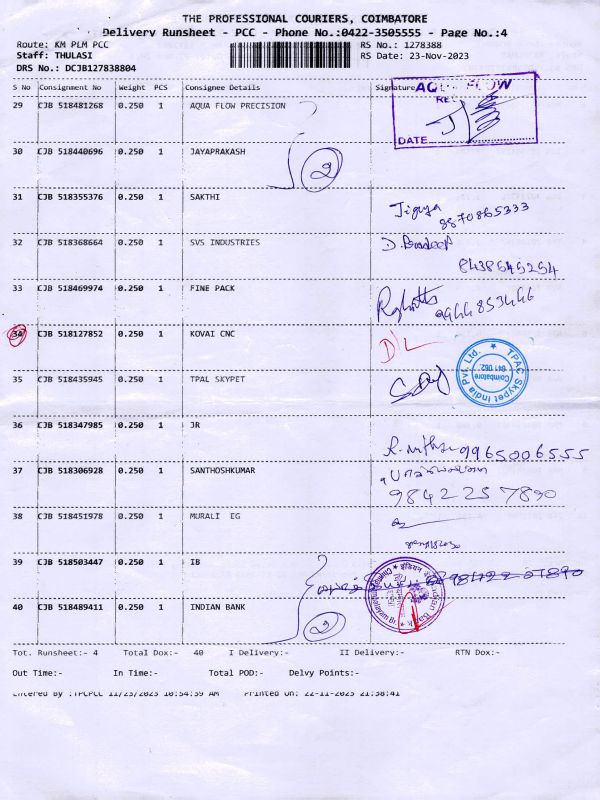 THE PROFESSIONAL COURIERS, COIMBATORE
Delivery Runsheet - PCC - Phone No.:0422-3505555 - Page No.:4
Route: KM PLM PCC RS No.: 1278388
Staff: THULASI RS Date: 23-Nov-2023
DRS No.: DCJB127838804
S No Consignment No Weight PCS Consignee Details Signature
AQUA FLOW
29 CJB 518481268 0.250 1 AQUA FLOW PRECISION
DATE
30 CJB 518440696 0.250 1 JAYAPRAKASH
2
31 CJB 518355376 0.250 1 SAKTHI
8870865333
32 CJB 518368664 0.250 1 SVS INDUSTRIES D. Pradeep
8438545254
33 CJB 518469974 0.250 1 FINE PACK
9944853466
34 CJB 518127852 0.250 1 KOVAI CNC D/L
TPAC Skypet India Pvt. Ltd.
Coimbatore
641 062.
35 CJB 518435945 0.250 1 TPAL SKYPET
36 CJB 518347985 0.250 1 JR
9965006555
37 CJB 518306928 0.250 1 SANTHOSHKUMAR
9842257890
38 CJB 518451978 0.250 1 MURALI EG
39 CJB 518503447 0.250 1 IB
Indian Bank
40 CJB 518489411 0.250 1 INDIAN BANK
2
Tot. Runsheet:- 4 Total Dox:- 40 I Delivery:- II Delivery:- RTN Dox:-
Out Time:- In Time:- Total POD:- Delvy Points:-
Entered By :TPCPCC 11/23/2023 10:54:39 AM Printed On: 22-11-2023 21:38:41